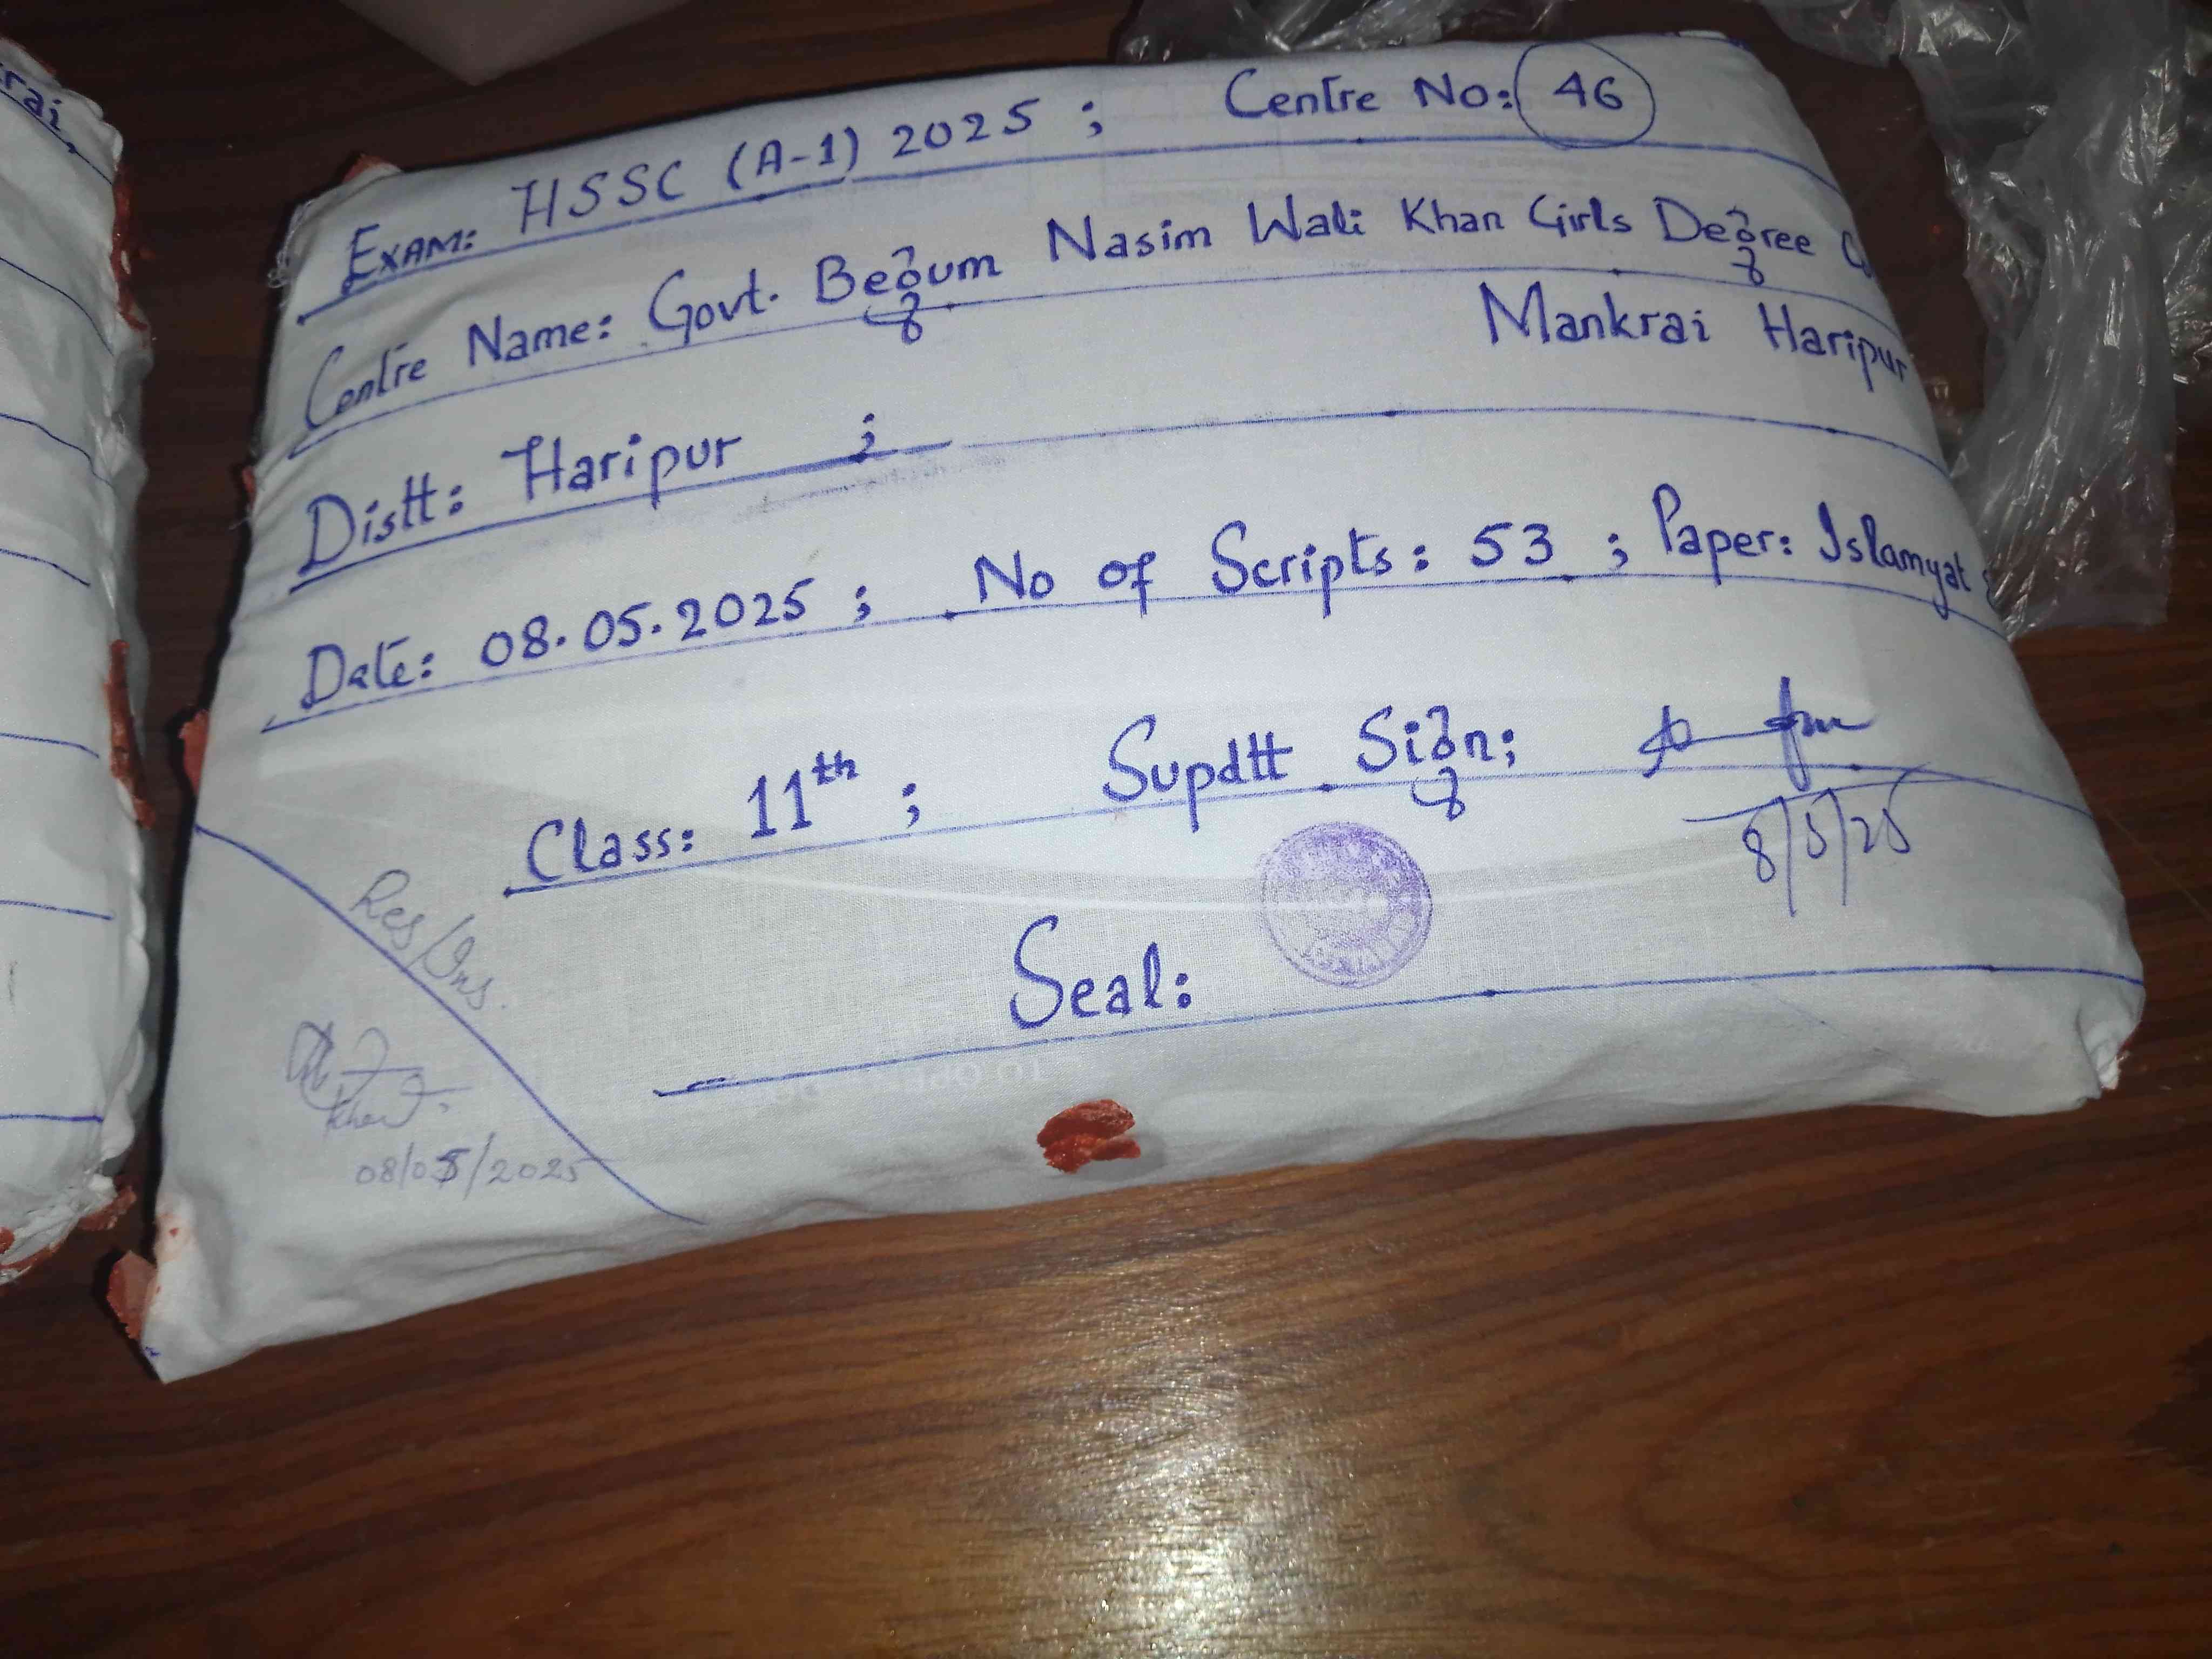 rai
Exam: HSSC (A-1) 2025 ; Centre No: 46
Centre Name: Govt. Begum Nasim Wali Khan Girls Degree
Mankrai Haripur
Distt: Haripur ;
Date: 08.05.2025 ; No of Scripts: 53 ; Paper: Islamyat
Class: 11th ; Supdtt Sign:
8/5/25
Seal:
Res/Ins.
08/05/2025